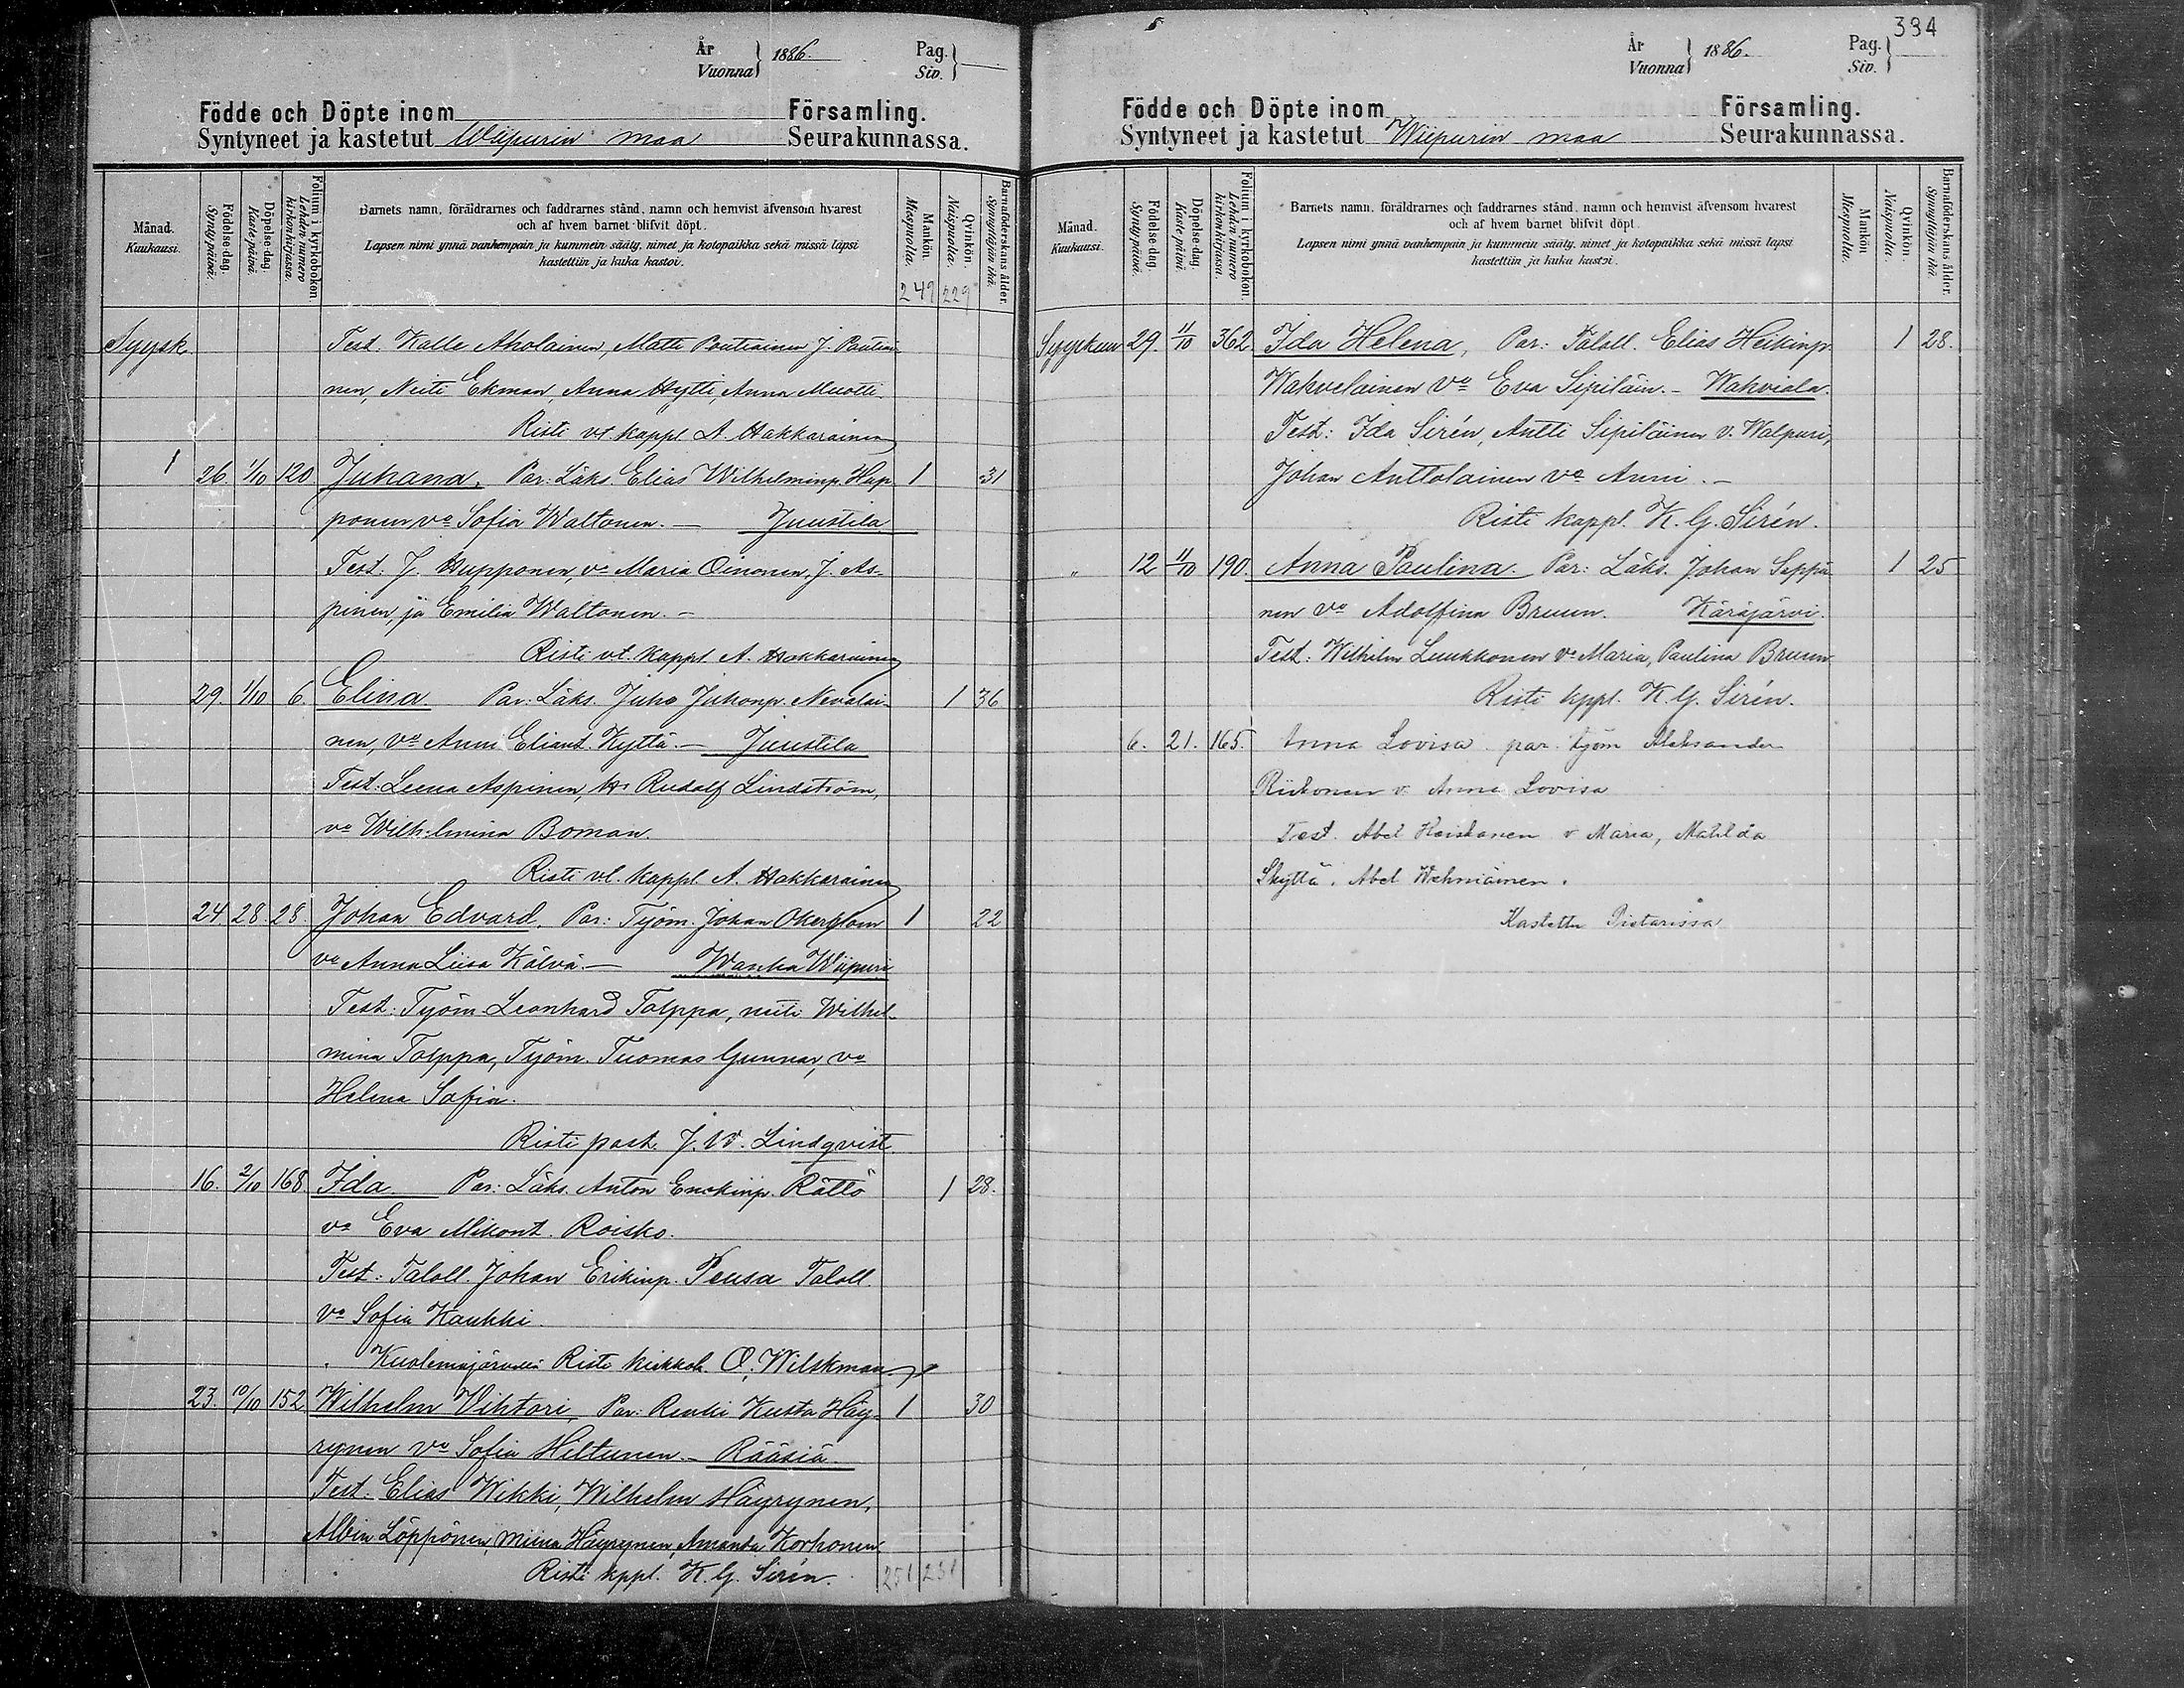 År
Vuonna
1886.
Pag.
Siv.
Födde och Döpte inom Församling.
Syntyneet ja kastetut Wiipurin maa Seurakunnassa.
Månad.
Kuukausi.
Födelse-dag.
Syntypäivä.
Döpelse-dag.
Kastepäivä.
Folium i kyrkoboken.
Lehden numero
kirkonkirjassa.
Barnets namn, föräldrarnes och faddrarnes stånd, namn och hemvist äfvensom hvarest
och af hvem barnet blifvit döpt.
Lapsen nimi ynnä vanhempain ja kummein sääty, nimet ja kotopaikka sekä missä lapsi
kastettiin ja kuka kastoi.
Mankön.
Miespuolia.
Qvinkön.
Naispuolia.
Barnaföderskans ålder.
Synnyttäjän ikä.
249 229
Syysk. Test. Kalle Aholainen, Matti Poutiainen J. Poutiai-
nen, Neiti Ekman, Anna Hytti, Anna Muotti.
Risti vt. kappl. A. Hakkarainen
1 26. 1/10 120 Juhana, Par: Läks. Elias Wilhelminp. Hup- 1 31
ponen va Sofia Waltonen. — Juustila
Test. J. Hupponen, va Maria Oinonen, J. As-
pinen, ja Emilia Waltonen. —
Risti vt. kappl. A. Hakkarainen
29. 1/10 6. Elina. Par: Läks. Juho Juhonp. Nevalai- 1 36
nen, va Anni Eliant. Kyttä. — Juustila
Test: Leena Aspinen, Hr Rudolf Lindström,
va Wilhelmina Boman.
Risti vt. kappl. A. Hakkarainen
24. 28. 28. Johan Edvard. Par: Työm. Johan Okerblom 1 22
va Anna Liisa Kälvä. — Wanha Wiipuri
Test: Työm. Leonhard Tolppa, neiti Wilhel-
mina Tolppa, Työm. Tuomas Gunnar, va
Helena Sofia.
Risti past. J. W. Lindqvist.
16. 2/10 168. Ida Par: Läks. Anton Enokinp. Rättö 1 28.
va Eva Mikont. Roisko.
Test: Taloll. Johan Erikinp. Peusa Taloll.
va Sofia Kaukki.
Kuolemajärvellä Risti kirkkoh. O. Wilskman
23. 10/10 152 Wilhelm Vihtori, Par: Renki Kusta Häy- 1 30
rynen va Sofia Hiltunen. — Rääsiä
Test. Elias Wikki, Wilhelm Häyrynen,
Albin Löppönen, Miina Häyrynen, Amanda Korhonen.
Risti kppl. K. G. Sirén. 251 231
334
År
Vuonna
1886.
Pag.
Siv.
Födde och Döpte inom Församling.
Syntyneet ja kastetut Wiipurin maa Seurakunnassa.
Månad.
Kuukausi.
Födelse-dag.
Syntypäivä.
Döpelse-dag.
Kastepäivä.
Folium i kyrkoboken.
Lehden numero
kirkonkirjassa.
Barnets namn, föräldrarnes och faddrarnes stånd, namn och hemvist äfvensom hvarest
och af hvem barnet blifvit döpt.
Lapsen nimi ynnä vanhempain ja kummein sääty, nimet ja kotopaikka sekä missä lapsi
kastettiin ja kuka kastoi.
Mankön.
Miespuolia.
Qvinkön.
Naispuolia.
Barnaföderskans ålder.
Synnyttäjän ikä.
Syyskuu 29. 11/10 362 Ida Helena, Par: Taloll. Elias Heikinp. 1 28.
Wahvelainen va Eva Sipiläin. — Wahviala.
Test: Ida Sirén, Antti Sipiläinen v. Walpuri,
Johan Anttolainen va Anni. —
Risti kappl. K. G. Sirén.
" 12 11/10 190. Anna Paulina. Par: Läks. Johan Seppä- 1 25
nen va Adolfina Bruun. Käräjärvi.
Test: Wilhelm Luukkonen va Maria, Paulina Bruun
Risti kppl. K. G. Sirén.
6. 21. 165. Anna Lovisa. par. työm Aleksander
Riikonen v. Anna Lovisa
Test. Abel Keiskanen v Maria, Matilda
Skyttä. Abel Wehmäinen.
Kastettu Pietarissa